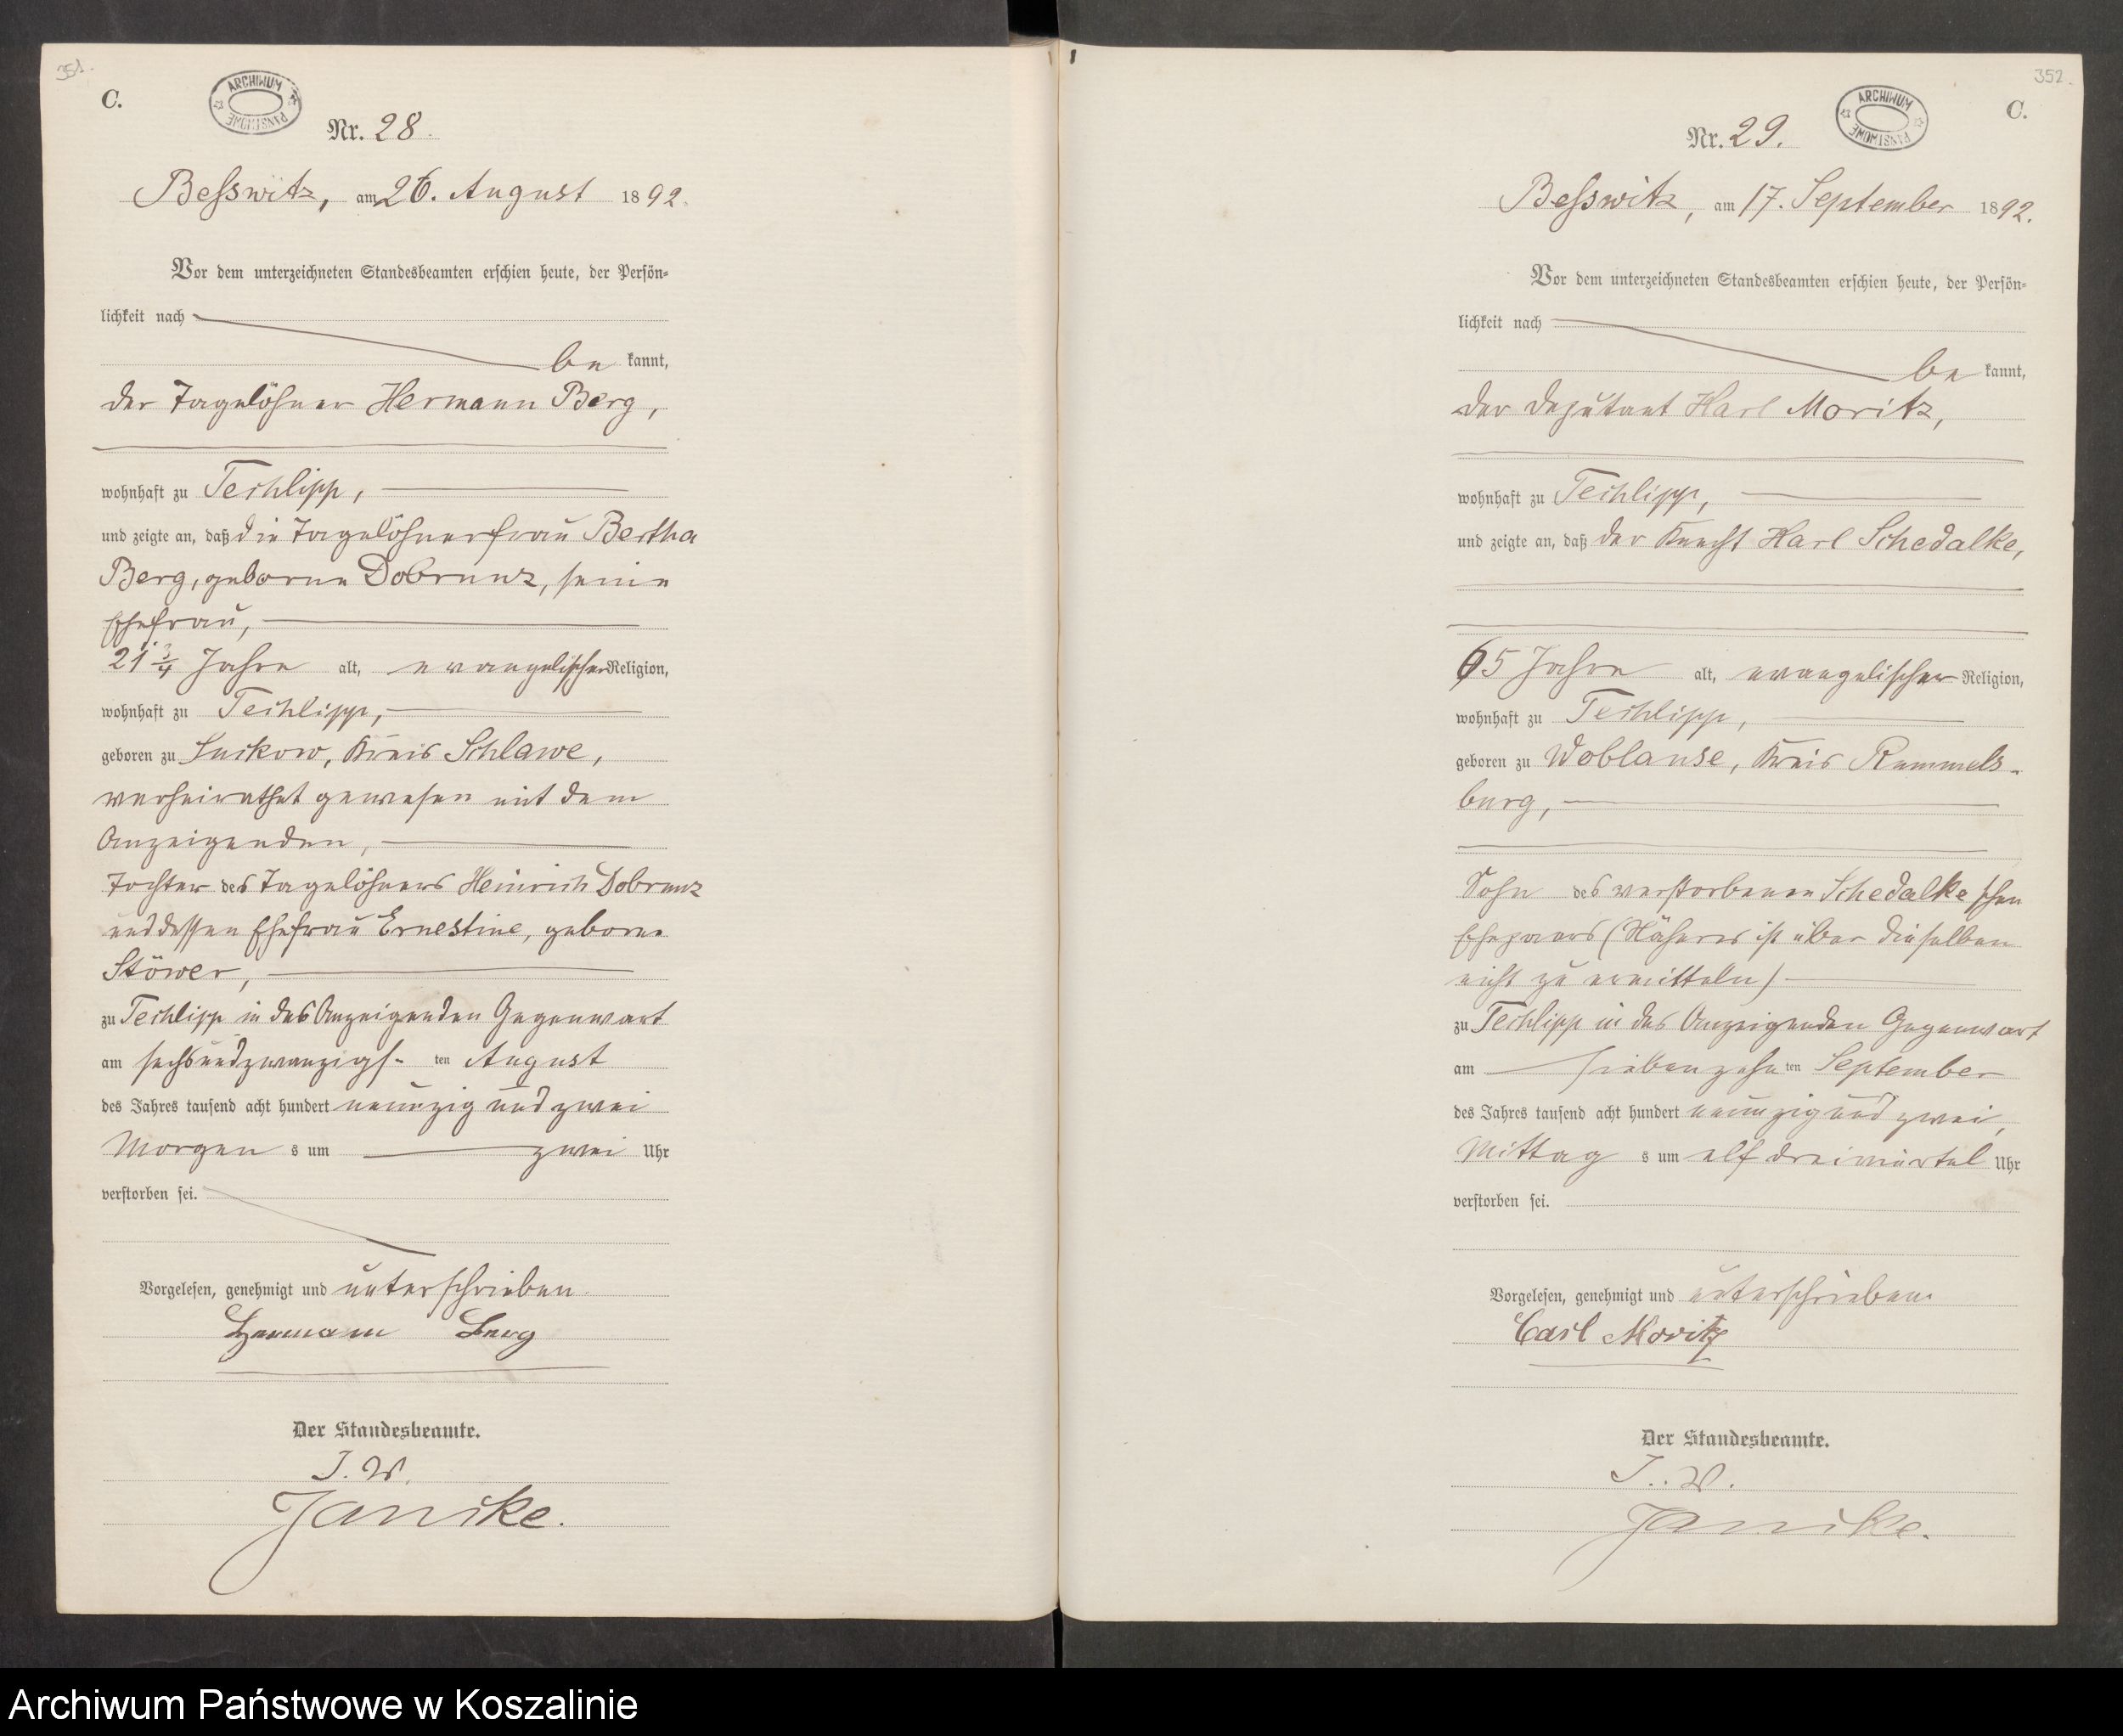 351.
C.
ARCHIWUM PAŃSTWOWE
Nr. 28.
Beſswitz, am 26. August 1892.
Vor dem unterzeichneten Standesbeamten erschien heute, der Persön-
lichkeit nach
be kannt,
der Tagelöhner Hermann Berg,
wohnhaft zu Techlipp,
und zeigte an, daß die Tagelöhnerfrau Bertha
Berg, geborne Dobrunz, seine
Ehefrau,
21 3/4 Jahre alt, evangelischer Religion,
wohnhaft zu Techlipp,
geboren zu Suckow, Kreis Schlawe,
verheirathet gewesen mit dem
Anzeigenden,
Tochter des Tagelöhners Heinrich Dobrunz
und dessen Ehefrau Ernestine, geborne
Stöwer,
zu Techlipp in des Anzeigenden Gegenwart
am sechsundzwanzigs- ten August
des Jahres tausend acht hundert neunzig und zwei
Morgen s um zwei Uhr
verstorben sei.
Vorgelesen, genehmigt und unterschrieben.
Hermann Berg
Der Standesbeamte.
J. V.
Janicke.
352.
C.
ARCHIWUM PAŃSTWOWE
Nr. 29.
Beſswitz, am 17. September 1892.
Vor dem unterzeichneten Standesbeamten erschien heute, der Persön-
lichkeit nach
be kannt,
der Deputant Karl Moritz,
wohnhaft zu Techlipp,
und zeigte an, daß der Knecht Karl Schedalke,
65 Jahre alt, evangelischer Religion,
wohnhaft zu Techlipp,
geboren zu Woblanse, Kreis Rummels-
burg,
Sohn des verstorbenen Schedalke'schen
Ehepaars (Näheres ist über dieselben
nicht zu ermitteln)
zu Techlipp in des Anzeigenden Gegenwart
am siebenzehn ten September
des Jahres tausend acht hundert neunzig und zwei,
Mittag s um elf dreiviertel Uhr
verstorben sei.
Vorgelesen, genehmigt und unterschrieben.
Carl Moritz
Der Standesbeamte.
J. V.
Janicke.
Archiwum Państwowe w Koszalinie